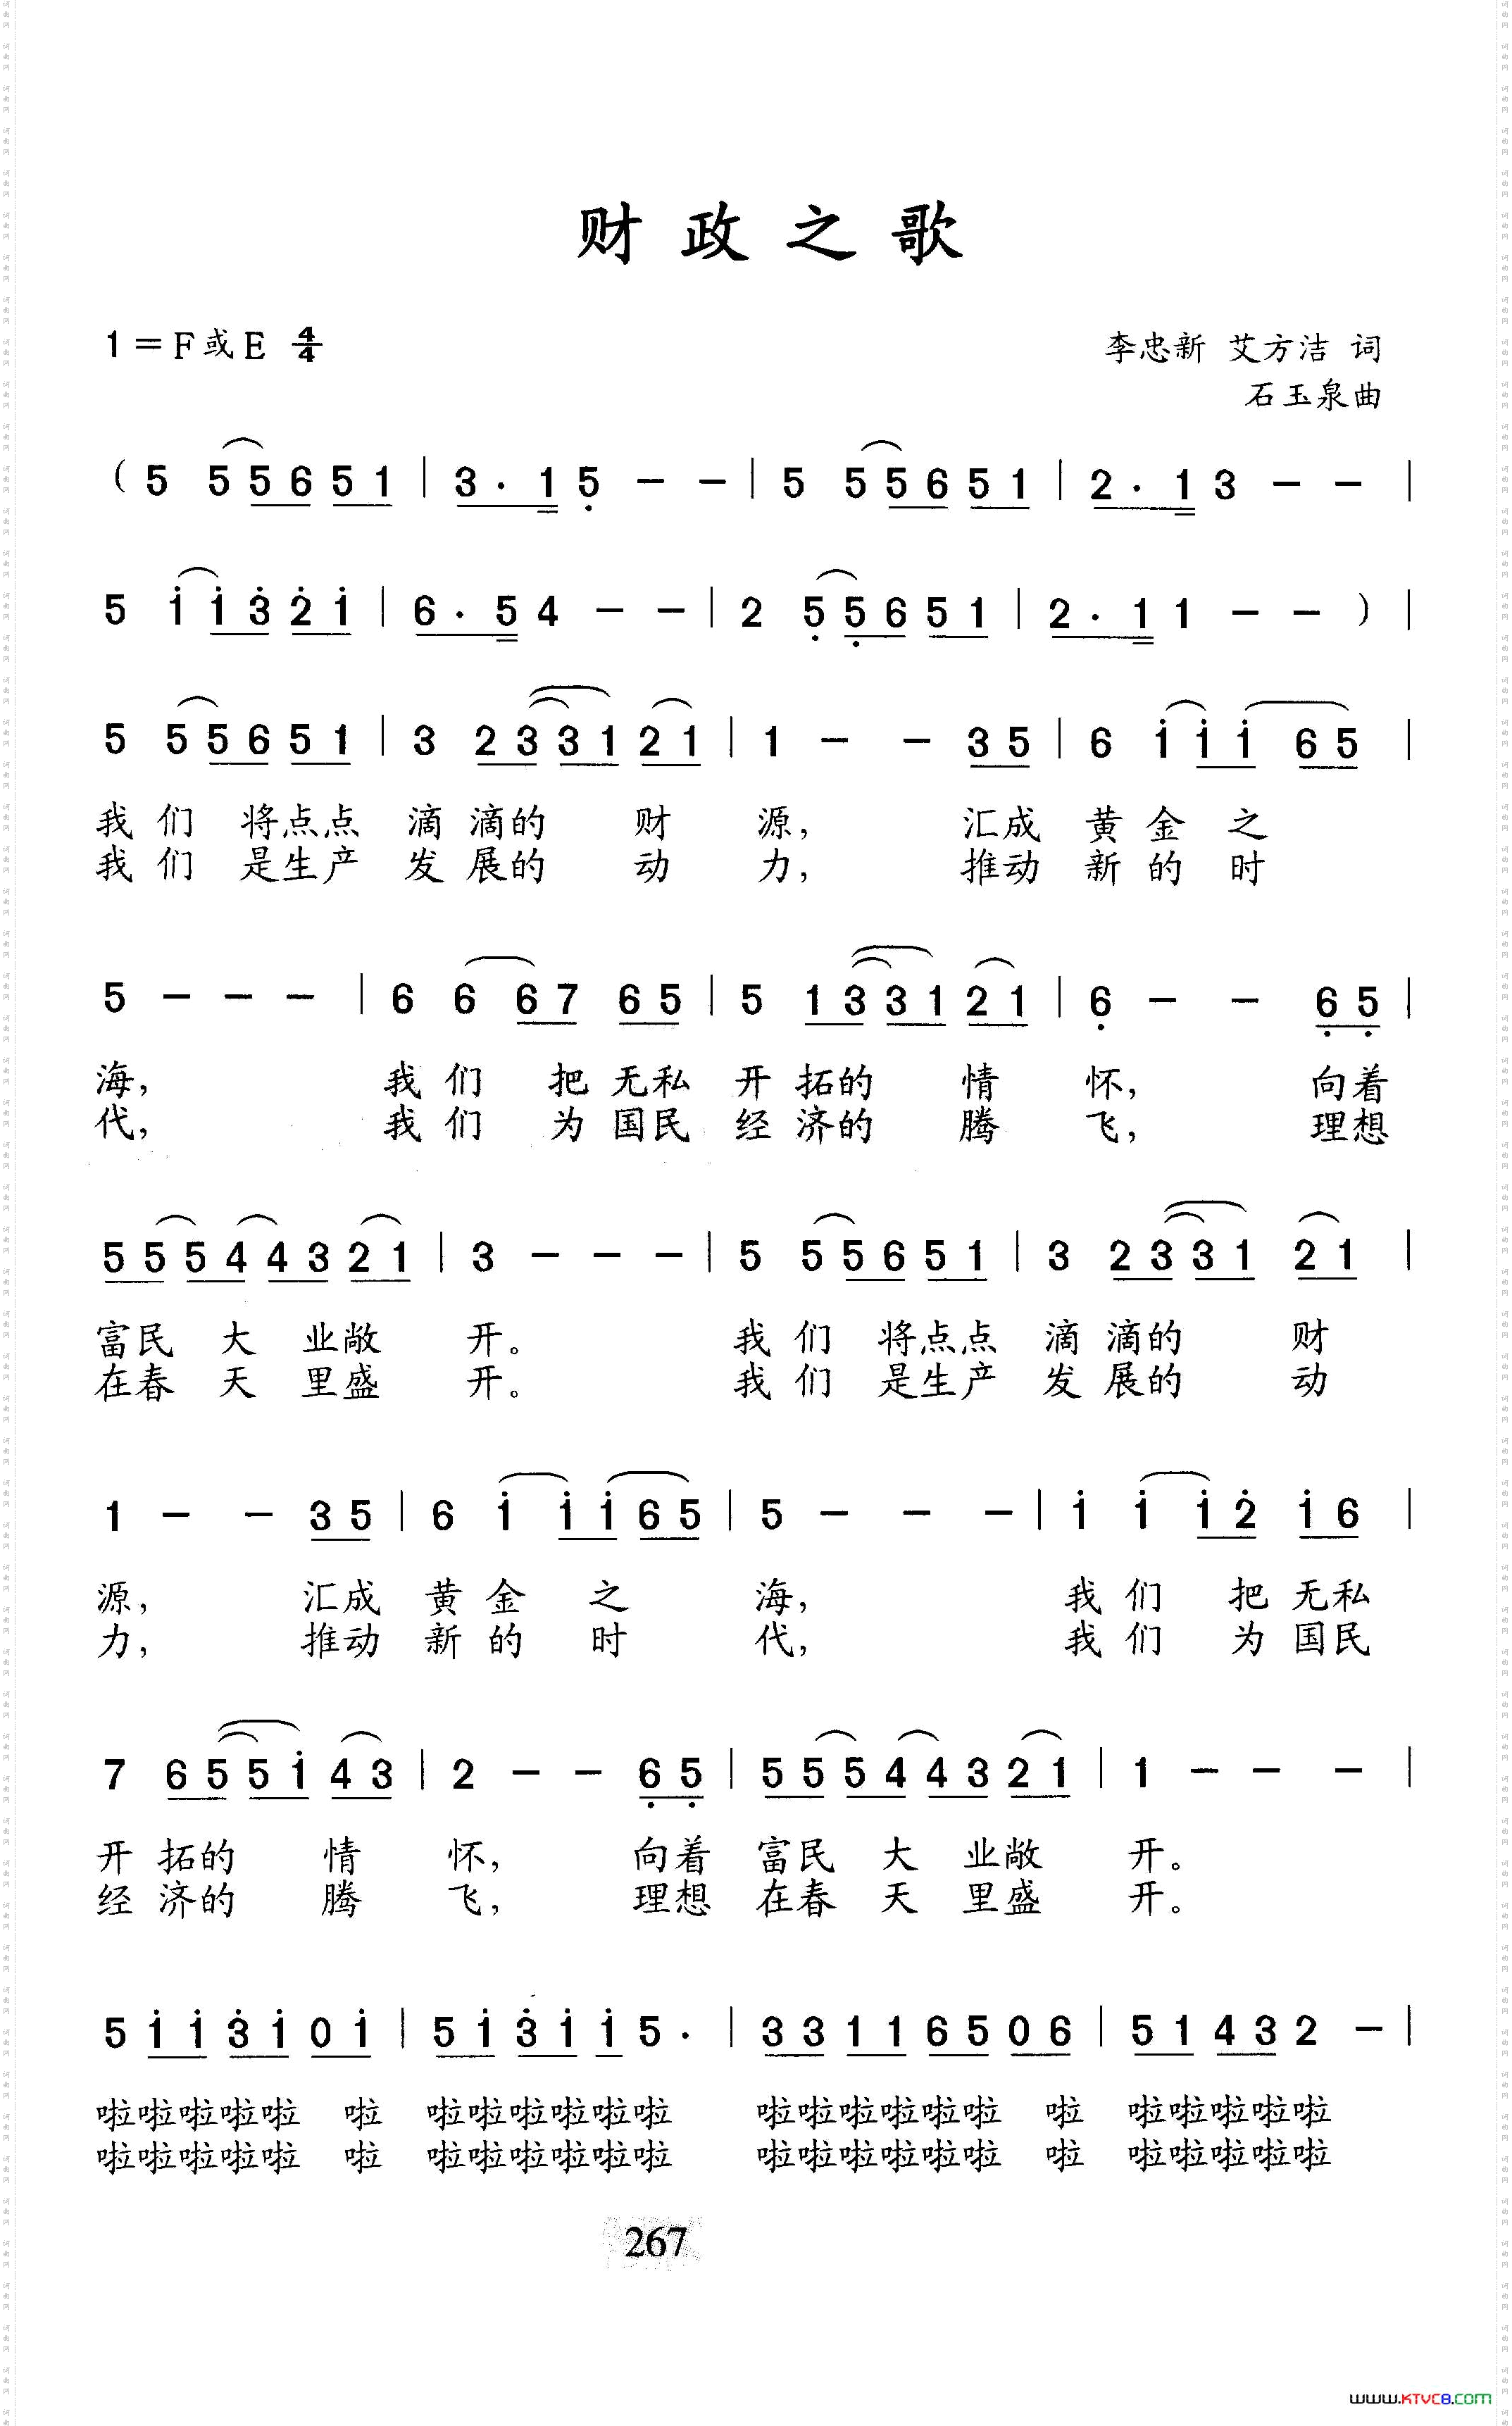 财政之歌
1=F或E 4/4 李忠新 艾方洁 词
石玉泉曲
( 5 5 5 6 5 1 | 3 · 1 5 - - | 5 5 5 6 5 1 | 2 · 1 3 - - |
5 1 1 3 2 1 | 6 · 5 4 - - | 2 5 5 6 5 1 | 2 · 1 1 - - ) |
5 5 5 6 5 1 | 3 2 3 3 1 2 1 | 1 - - 3 5 | 6 1 1 1 6 5 |
我们 将点点 滴 滴的 财 源, 汇成 黄 金 之
我们 是生产 发 展的 动 力, 推动 新 的 时
5 - - - | 6 6 6 7 6 5 | 5 1 3 3 1 2 1 | 6 - - 6 5 |
海, 我们 把无私 开 拓的 情 怀, 向着
代, 我们 为国民 经 济的 腾 飞, 理想
5 5 5 4 4 3 2 1 | 3 - - - | 5 5 5 6 5 1 | 3 2 3 3 1 2 1 |
富民 大 业敞 开。 我们 将点点 滴 滴的 财
在春 天 里盛 开。 我们 是生产 发 展的 动
1 - - 3 5 | 6 1 1 1 6 5 | 5 - - - | 1 1 1 2 1 6 |
源, 汇成 黄 金 之 海, 我们 把无私
力, 推动 新 的 时 代, 我们 为国民
7 6 5 5 1 4 3 | 2 - - 6 5 | 5 5 5 4 4 3 2 1 | 1 - - - |
开 拓的 情 怀, 向着 富民 大 业敞 开。
经 济的 腾 飞, 理想 在春 天 里盛 开。
5 1 1 3 1 0 1 | 5 1 3 1 1 5 · | 3 3 1 1 6 5 0 6 | 5 1 4 3 2 - |
啦啦啦啦啦 啦 啦啦啦啦啦啦 啦啦啦啦啦啦 啦 啦啦啦啦啦
啦啦啦啦啦 啦 啦啦啦啦啦啦 啦啦啦啦啦啦 啦 啦啦啦啦啦
267
www.KTVC8.com